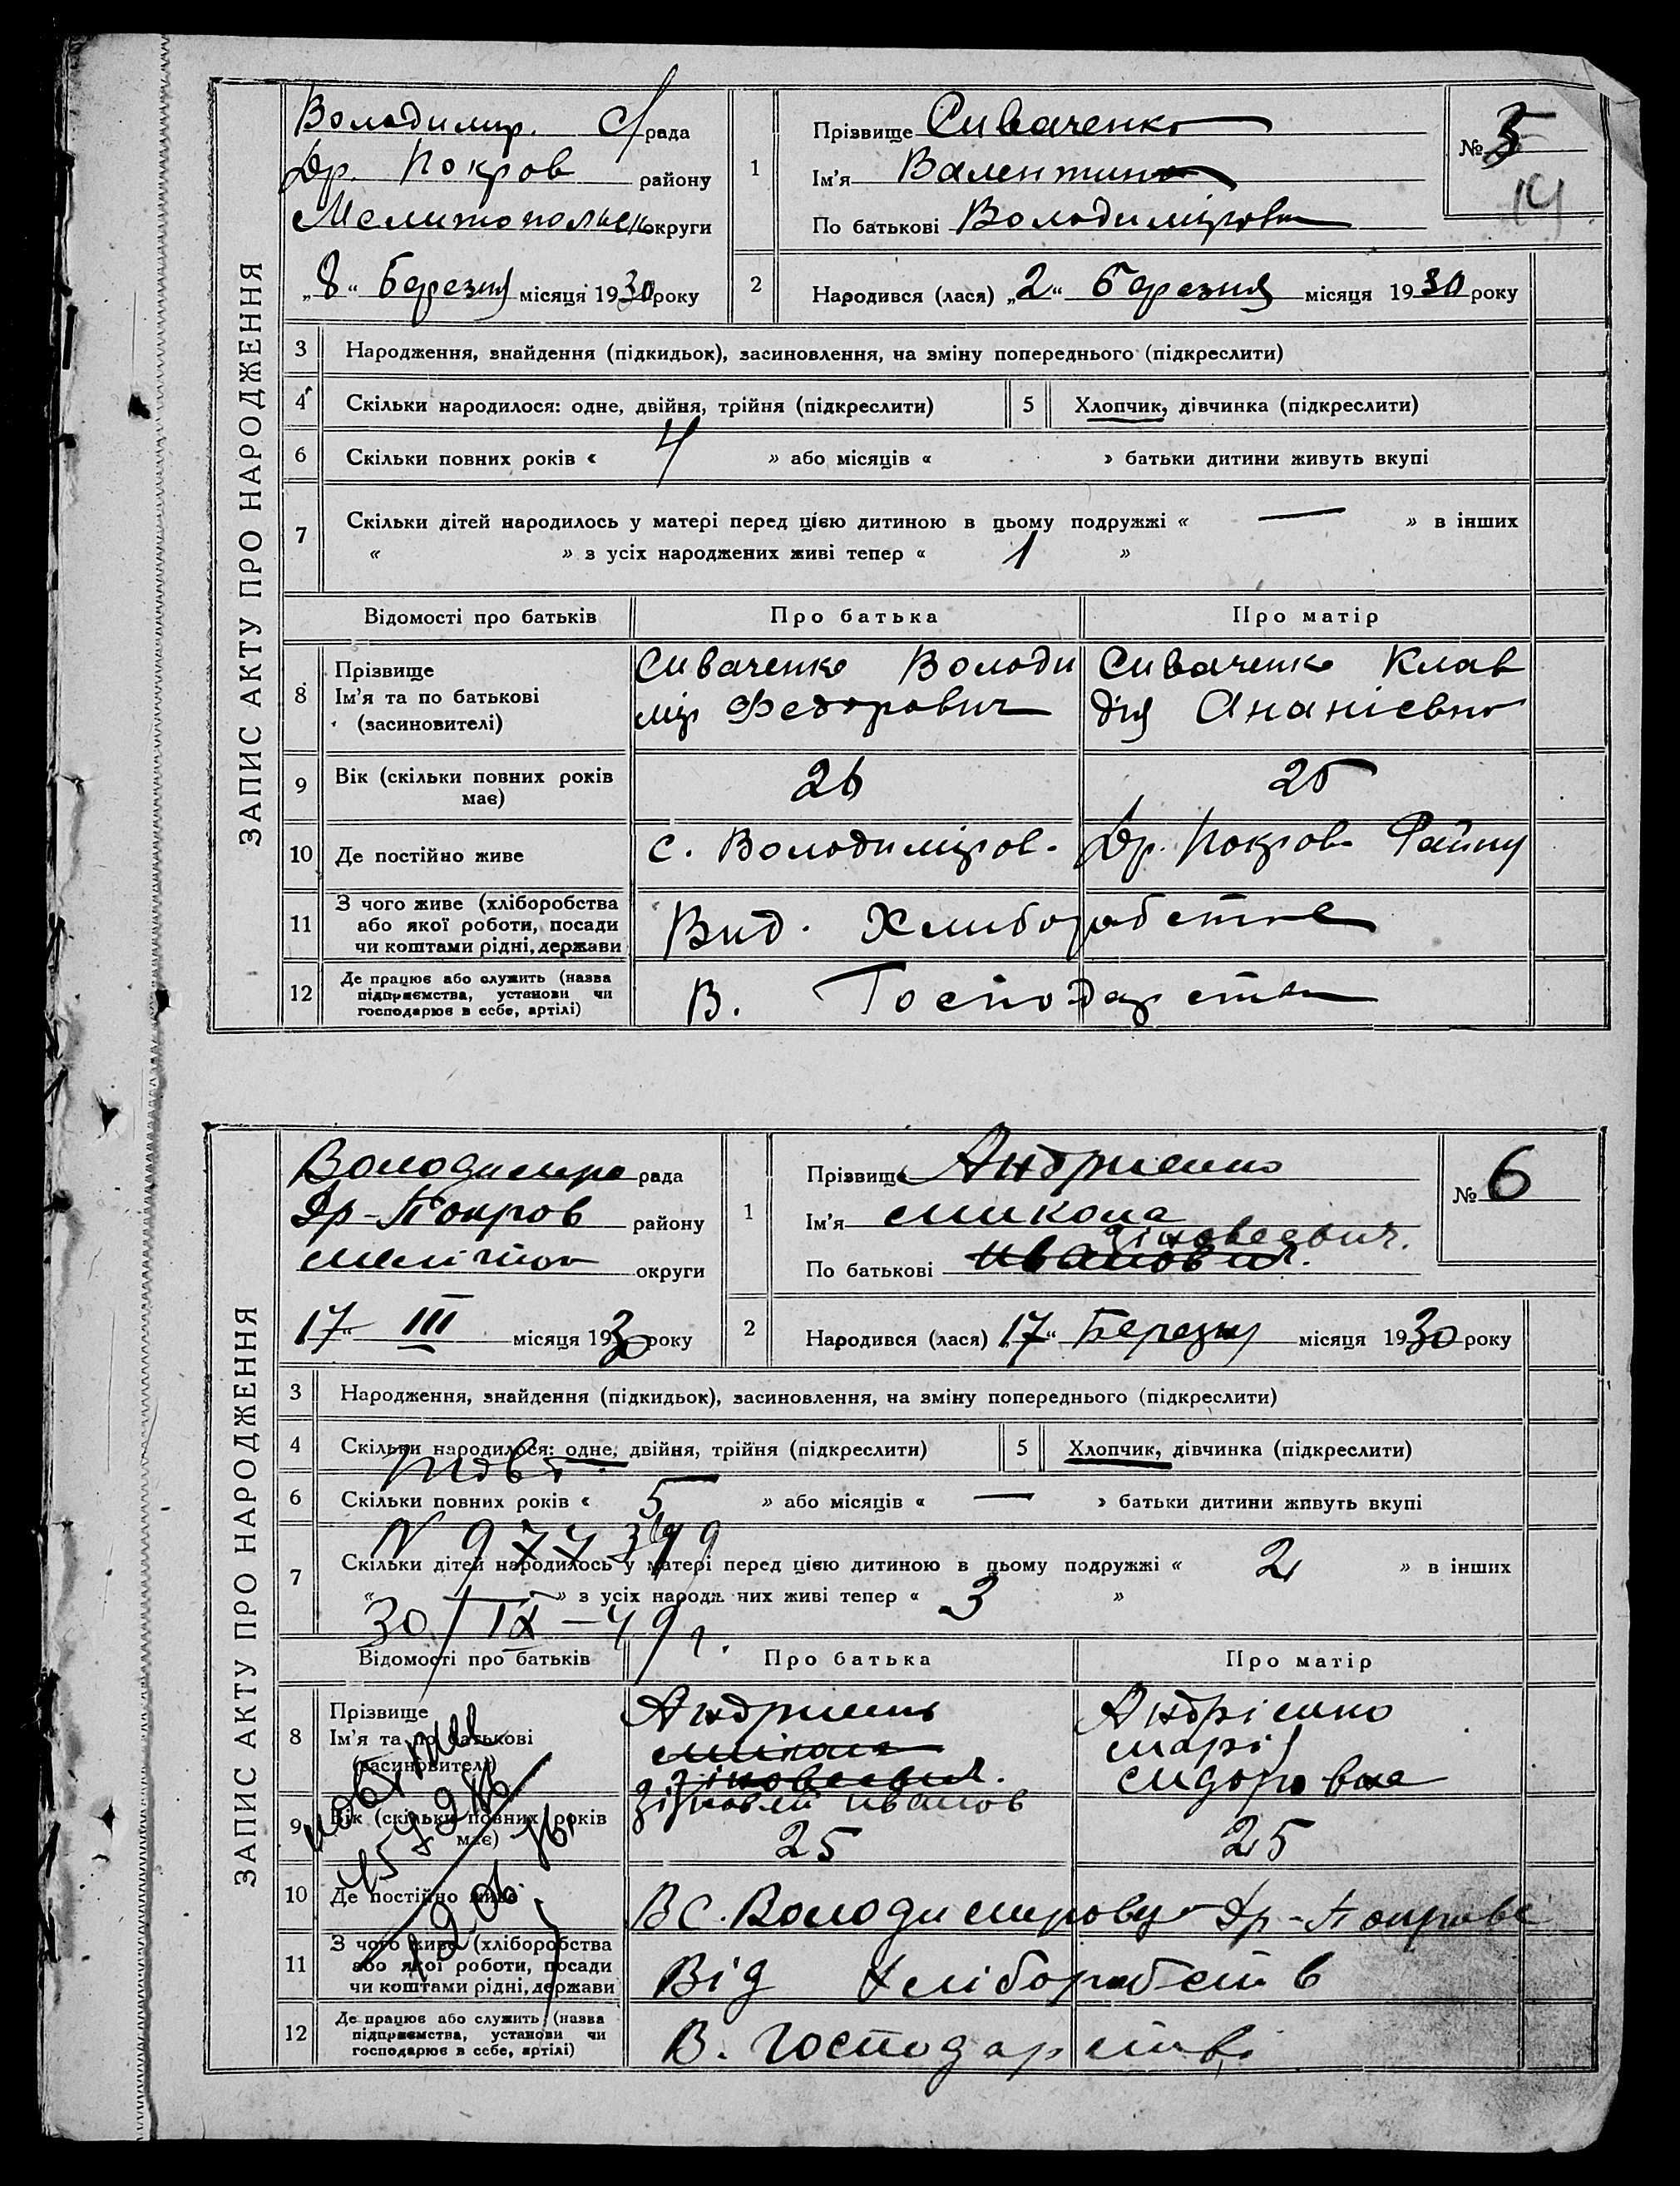 ЗАПИС АКТУ ПРО НАРОДЖЕННЯ
Володимир. С/рада
Др. Покров району
Мелитопольск округи
„8“ Березня місяця 1930 року
1
Прізвище Сиваченко
Ім'я Валентин
По батькові Володимірови
№ 5
14
2
Народився (лася) „2“ березня місяця 1930 року
3 Народження, знайдення (підкидьок), засиновлення, на зміну попереднього (підкреслити)
4 Скільки народилося: одне, двійня, трійня (підкреслити)
5 Хлопчик, дівчинка (підкреслити)
6 Скільки повних років « 4 » або місяців « » батьки дитини живуть вкупі
7 Скільки дітей народилось у матері перед цією дитиною в цьому подружжі « — » в інших
« » з усіх народжених живі тепер « 1 »
Відомості про батьків Про батька Про матір
8 Прізвище
Ім'я та по батькові
(засиновителі)
Сиваченко Володи
мір Федорович
Сиваченко Клав
дія Ананієвна
9 Вік (скільки повних років
має)
26
25
10 Де постійно живе
с. Володиміров. Др. Покров. Району
11 З чого живе (хліборобства
або якої роботи, посади
чи коштами рідні, держави
Вид. Хлиборобство
12 Де працює або служить (назва
підприємства, установи чи
господарює в себе, артілі)
В. Господарстви
ЗАПИС АКТУ ПРО НАРОДЖЕННЯ
Володимиро рада
Др-Покров району
мелітоп округи
17“ III місяця 1930 року
1
Прізвище Андриенко
Ім'я микола
зіновеевич.
По батькові Иванович.
№ 6
2
Народився (лася) 17“ Березня місяця 1930 року
3 Народження, знайдення (підкидьок), засиновлення, на зміну попереднього (підкреслити)
4 Скільки народилося: одне, двійня, трійня (підкреслити)
5 Хлопчик, дівчинка (підкреслити)
6 Скільки повних років « 5 » або місяців « — » батьки дитини живуть вкупі
7 Скільки дітей народилось у матері перед цією дитиною в цьому подружжі « 2 » в інших
« » з усіх народжених живі тепер « 3 »
30/IX-49 г.
Відомості про батьків Про батька Про матір
8 Прізвище
Ім'я та по батькові
(засиновителі)
Андриенко
микола
зіновеевич.
Зіновей иванов
Андрієнко
марія
сидоровна
9 Вік (скільки повних років
має)
25
25
10 Де постійно живе
В с. Володимировцы Др-Покровс
11 З чого живе (хліборобства
або якої роботи, посади
чи коштами рідні, держави
Від хліборобств
12 Де працює або служить (назва
підприємства, установи чи
господарює в себе, артілі)
В. господарстві